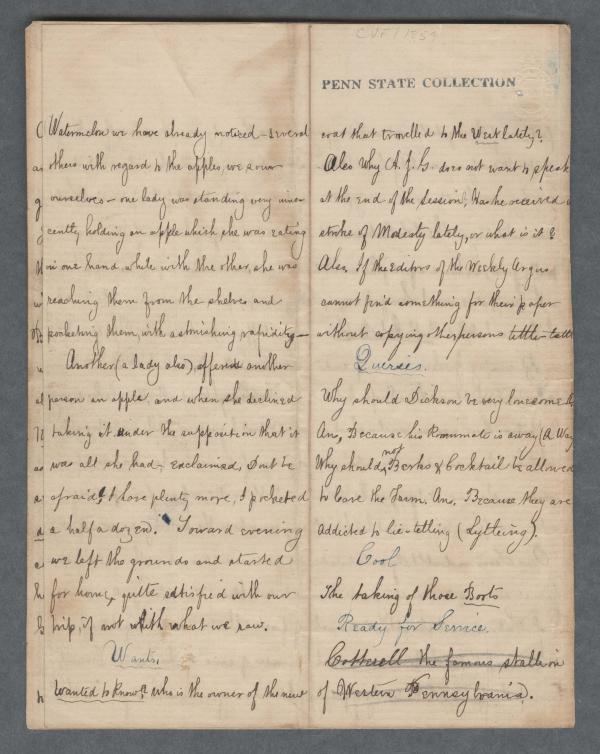 CVF / 1859
PENN STATE COLLECTION
Watermelon we have already noticed - several
others with regard to the apples, we saw
ourselves - one lady was standing very inno-
cently holding an apple which she was eating
in one hand while with the other, she was
reaching them from the shelves and
pocketing them, with astonishing rapidity -
Another (a lady also), offered another
person an apple and when she declined
taking it under the supposition that it
was all she had - exclaimed, Dont be
afraid, I have plenty more, I pocketed
a half a dozen. Toward evening
we left the grounds and started
for home, quitte satisfied with our
trip, if not with what we saw.
Wants.
Wanted to know? who is the owner of the new
coat that travelled to the West lately?
Also Why A. J. G. does not want to speak
at the end of the Session; Has he received a
stroke of Modesty lately, or what is it?
Also, If the Editors of the Weekly Argus
cannot find something for their paper
without copying other persons tettle-tattle
Queries.
Why should Dickson be very lonesome
Ans, Because his Roommate is away (A Way
Why should not Berks & Cocktail be allowed
to leave the Farm. Ans. Because they are
addicted to lie-telling (Lytleing).
Cool
The taking of those Boots
Ready for Service.
Cottrell the famous stallion
of Western Pennsylvania.